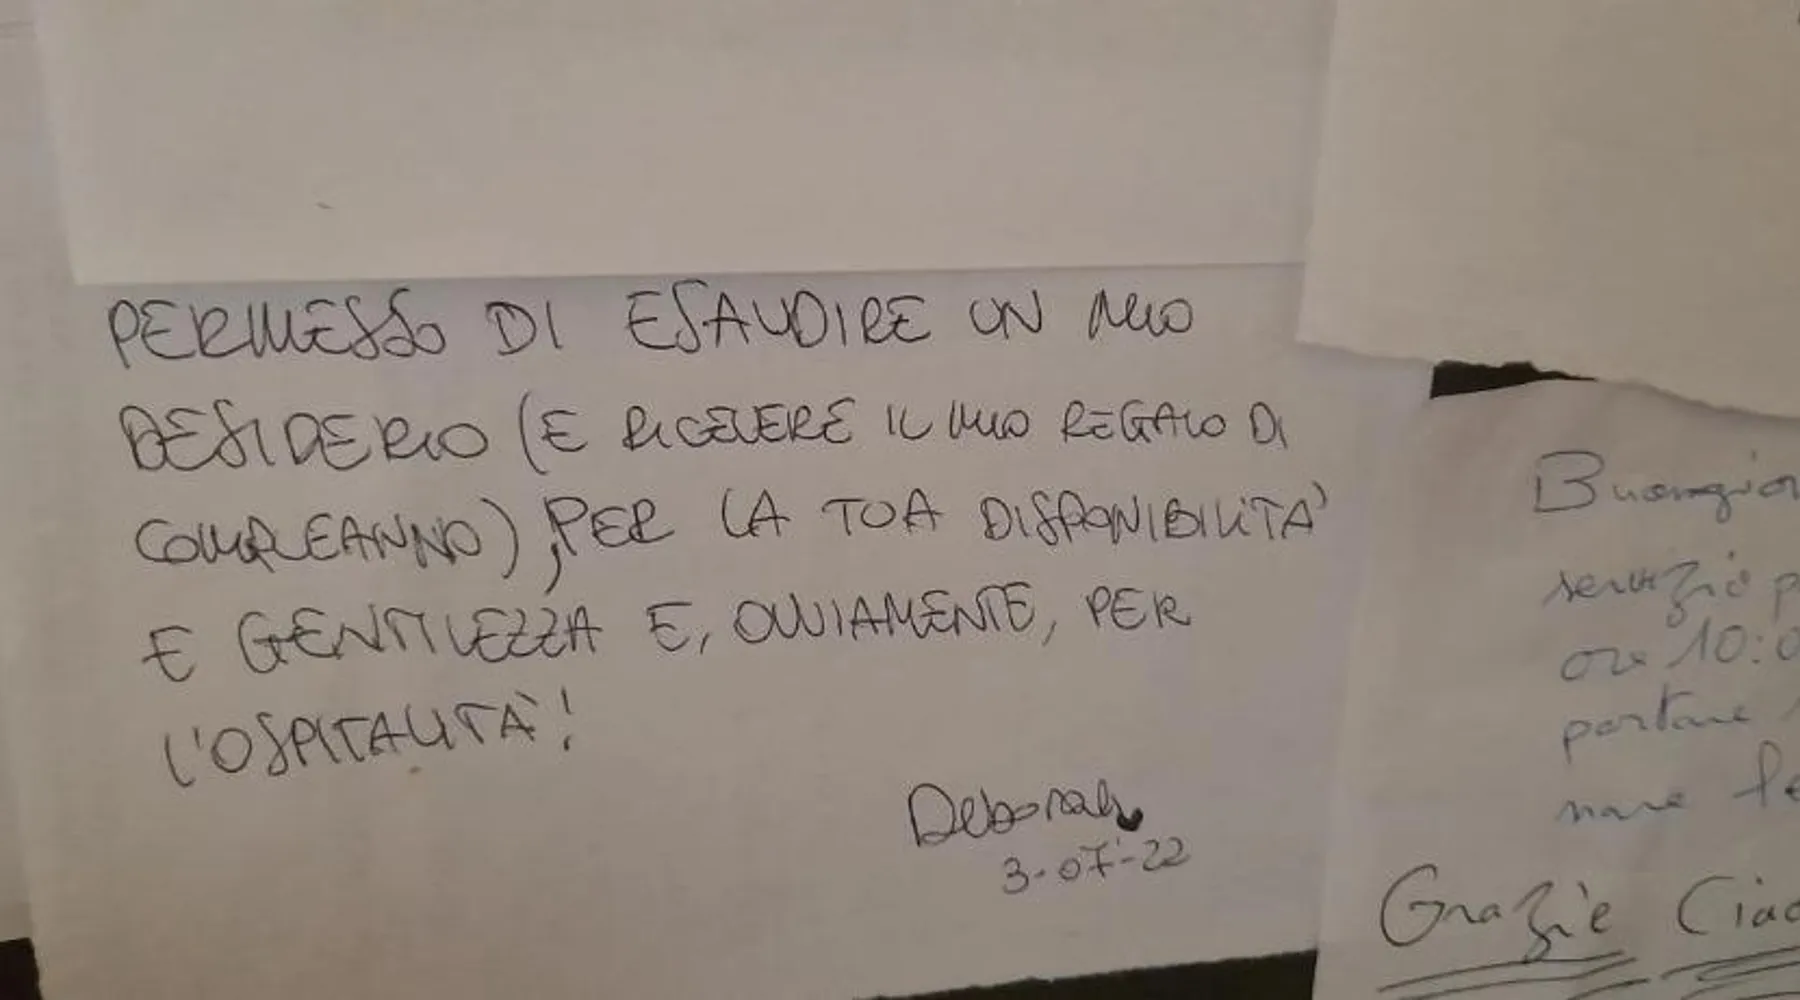 PERMESSO DI ESAUDIRE UN MIO
DESIDERIO (E RICEVERE IL MIO REGALO DI
COMPLEANNO), PER LA TUA DISPONIBILITA'
E GENTILEZZA E, OVVIAMENTE, PER
L'OSPITALITÀ!
Deborah
3-07-22
Buongior
servizio p
ore 10:0
portare
Grazie Ciao